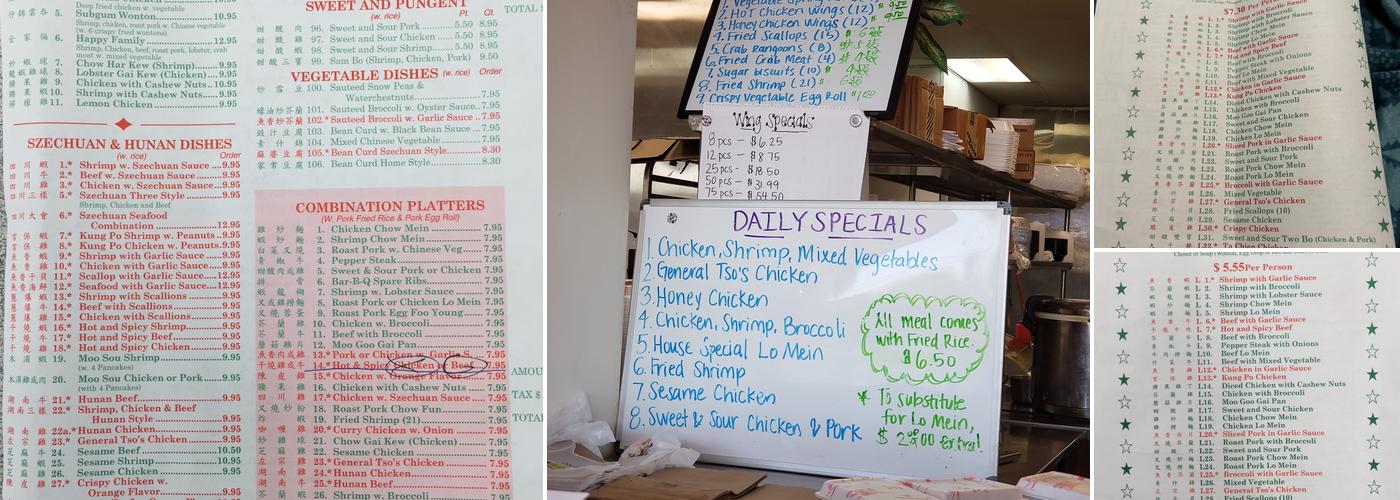 什錦雲吞 5. Subgum Wonton 10.95
Shrimp, chicken, roast pork w. Chinese vegetable
(w. 6 crispy fried wontons)
全家福 6. Happy Family 12.95
Shrimp, Chicken, beef, roast pork, lobster, crab
meat w. mixed vegetable
炒蝦球 7. Chow Har Kew (Shrimp) 9.95
龍蝦雞球 8. Lobster Gai Kew (Chicken) 9.95
腰果雞 9. Chicken with Cashew Nuts 10.95
腰果蝦 10. Shrimp with Cashew Nuts 9.95
檸檬雞 11. Lemon Chicken 9.95
SZECHUAN & HUNAN DISHES
(w. rice) Order
四川蝦 1.* Shrimp w. Szechuan Sauce 9.95
四川牛 2.* Beef w. Szechuan Sauce 9.95
四川雞 3.* Chicken w. Szechuan Sauce 9.95
四川三樣 5.* Szechuan Three Style 9.95
Shrimp, Chicken and Beef
四川大會 6.* Szechuan Seafood
Combination 12.95
宮保蝦 7.* Kung Po Shrimp w. Peanuts 9.95
宮保雞 8.* Kung Po Chicken w. Peanuts 9.95
魚香蝦 9.* Shrimp with Garlic Sauce 9.95
魚香雞 10.* Chicken with Garlic Sauce 9.95
魚香干貝 11.* Scallop with Garlic Sauce 12.95
魚香海鮮 12.* Seafood with Garlic Sauce 12.95
蔥爆蝦 13.* Shrimp with Scallions 9.95
蔥爆牛 14.* Beef with Scallions 9.95
蔥爆雞 15.* Chicken with Scallions 9.95
干燒蝦 16.* Hot and Spicy Shrimp 9.95
干燒牛 17.* Hot and Spicy Beef 9.95
干燒雞 18.* Hot and Spicy Chicken 9.95
木須蝦 19. Moo Sou Shrimp 9.95
(w. 4 Pancakes)
木須雞或肉 20. Moo Sou Chicken or Pork 9.95
(with 4 Pancakes)
湖南牛 21.* Hunan Beef 9.95
湖南三樣 22.* Shrimp, Chicken & Beef
Hunan Style 9.95
湖南雞 22a.* Hunan Chicken 9.95
左宗雞 23.* General Tso's Chicken 9.95
芝麻牛 24. Sesame Beef 10.50
芝麻蝦 25. Sesame Shrimp 10.95
芝麻雞 26. Sesame Chicken 9.95
陳皮雞 27.* Crispy Chicken w.
Orange Flavor 9.95
SWEET AND PUNGENT
(w. rice) Pt. Qt.
甜酸肉 96. Sweet and Sour Pork 5.50 8.95
甜酸雞 97. Sweet and Sour Chicken 5.50 8.95
甜酸蝦 98. Sweet and Sour Shrimp 5.50 8.95
甜酸三寶 99. Sam Bo (Shrimp, Chicken, Pork) 9.50
VEGETABLE DISHES (w. rice) Order
炒雪豆 100. Sauteed Snow Peas &
Waterchestnuts 7.95
蠔油炒芥蘭 101. Sauteed Broccoli w. Oyster Sauce 7.95
魚香炒芥蘭 102.* Sauteed Broccoli w. Garlic Sauce 7.95
豉汁豆腐 103. Bean Curd w. Black Bean Sauce 7.95
素什錦 104. Mixed Chinese Vegetable 7.95
麻婆豆腐 105.* Bean Curd Szechuan Style 8.30
家常豆腐 106. Bean Curd Home Style 8.30
COMBINATION PLATTERS
(W. Pork Fried Rice & Pork Egg Roll)
雞炒麵 1. Chicken Chow Mein 7.95
蝦炒麵 2. Shrimp Chow Mein 7.95
白菜叉燒 3. Roast Pork w. Chinese Veg. 7.95
青椒牛 4. Pepper Steak 7.95
甜酸肉或雞 5. Sweet & Sour Pork or Chicken 7.95
排骨 6. Bar-B-Q Spare Ribs 7.95
蝦龍糊 7. Shrimp w. Lobster Sauce 7.95
叉或雞撈麵 8. Roast Pork or Chicken Lo Mein 7.95
叉燒蓉蛋 9. Roast Pork Egg Foo Young 7.95
芥蘭雞 10. Chicken w. Broccoli 7.95
芥蘭牛 11. Beef with Broccoli 7.95
蘑菇雞片 12. Moo Goo Gai Pan 7.95
魚香肉或雞 13.* Pork or Chicken w. Garlic S. 7.95
干燒雞或牛 14.* Hot & Spicy Chicken or Beef 7.95
陳皮雞 15.* Chicken w. Orange Flavor 7.95
腰果雞 16. Chicken with Cashew Nuts 7.95
四川雞 17.* Chicken w. Szechuan Sauce 7.95
叉燒炒粉 18. Roast Pork Chow Fun 7.95
炸蝦 19. Fried Shrimp (21) 7.95
咖喱雞 20.* Curry Chicken w. Onion 7.95
炒雞球 21. Chow Gai Kew (Chicken) 7.95
芝麻雞 22. Sesame Chicken 7.95
左宗雞 23.* General Tso's Chicken 7.95
湖南雞 24.* Hunan Chicken 7.95
湖南牛 25.* Hunan Beef 7.95
芥蘭蝦 26. Shrimp w. Broccoli 7.95
TOTAL $
AMOU
TAX $
TOTAL
2. HOT Chicken Wings (12)
3. Honey Chicken Wings (12)
4. Fried Scallops (15)
5. Crab Rangoons (8)
6. Fried Crab Meat (4)
7. Sugar biscuits (10)
8. Fried Shrimp (21)
9. Crispy Vegetable Egg Roll
Wing Specials
8 pcs - $6.25
12 pcs - $8.75
25 pcs - $18.50
50 pcs - $31.99
75 pcs - $54.50
DAILY SPECIALS
1. Chicken, Shrimp, Mixed Vegetables
2. General Tso's Chicken
3. Honey Chicken
4. Chicken, Shrimp, Broccoli
5. House Special Lo Mein
6. Fried Shrimp
7. Sesame Chicken
8. Sweet & Sour Chicken & Pork
All meal comes
with Fried Rice.
$6.50
* To substitute
for Lo Mein,
$2.00 extra!
$7.30 Per Person
L 1.* Shrimp with Garlic Sauce
L 2. Shrimp with Broccoli
L 3. Shrimp with Lobster Sauce
L 4. Shrimp Chow Mein
L 5. Shrimp Lo Mein
L 6.* Beef with Garlic Sauce
L 7.* Hot and Spicy Beef
L 8. Beef with Broccoli
L 9. Pepper Steak with Onions
L10. Beef Lo Mein
L11. Beef with Mixed Vegetable
L12.* Chicken in Garlic Sauce
L13.* Kung Po Chicken
L14. Diced Chicken with Cashew Nuts
L15. Chicken with Broccoli
L16. Moo Goo Gai Pan
L17. Sweet and Sour Chicken
L18. Chicken Chow Mein
L19. Chicken Lo Mein
L20.* Sliced Pork in Garlic Sauce
L21. Roast Pork with Broccoli
L22. Sweet and Sour Pork
L23. Roast Pork Chow Mein
L24. Roast Pork Lo Mein
L25.* Broccoli with Garlic Sauce
L26. Mixed Vegetable
L27.* General Tso's Chicken
L28. Fried Scallops (10)
L29. Sesame Chicken
L30.* Crispy Chicken
L31. Sweet and Sour Two Bo (Chicken & Pork)
$ 5.55 Per Person
L 1.* Shrimp with Garlic Sauce
L 2. Shrimp with Broccoli
L 3. Shrimp with Lobster Sauce
L 4. Shrimp Chow Mein
L 5. Shrimp Lo Mein
L 6.* Beef with Garlic Sauce
L 7.* Hot and Spicy Beef
L 8. Beef with Broccoli
L 9. Pepper Steak with Onions
L10. Beef Lo Mein
L11. Beef with Mixed Vegetable
L12.* Chicken in Garlic Sauce
L13.* Kung Po Chicken
L14. Diced Chicken with Cashew Nuts
L15. Chicken with Broccoli
L16. Moo Goo Gai Pan
L17. Sweet and Sour Chicken
L18. Chicken Chow Mein
L19. Chicken Lo Mein
L20.* Sliced Pork in Garlic Sauce
L21. Roast Pork with Broccoli
L22. Sweet and Sour Pork
L23. Roast Pork Chow Mein
L24. Roast Pork Lo Mein
L25.* Broccoli with Garlic Sauce
L26. Mixed Vegetable
L27. General Tso's Chicken
L28. Fried Scallops (10)